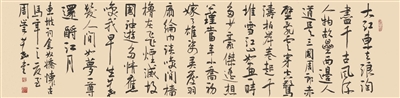 大江東去浪淘
盡千古風流
人物故壘西邊人
道是三國周郎赤
壁亂石穿空驚
濤拍岸卷起千
堆雪江山如畫一時
多少豪傑遙想
公瑾當年小喬初
嫁了雄姿英發羽
扇綸巾談笑間檣
櫓灰飛煙滅故
國神遊多情應
笑我早生華
髮人間如夢一尊
還酹江月